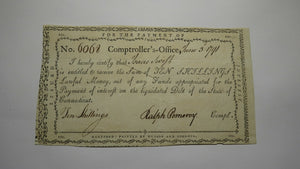 FOR THE PAYMENT OF
No. 6068 Comptroller's-Office, June 3 1791
I hereby certify that Isaac Swift
is entitled to receive the Sum of Ten SHILLINGS
Lawful Money, out of any Funds appropriated for the
Payment of interest on the liquidated Debt of the State of
Connecticut.
Ten Shillings Ralph Pomeroy Compt.
HARTFORD: PRINTED BY HUDSON AND GOODWIN.